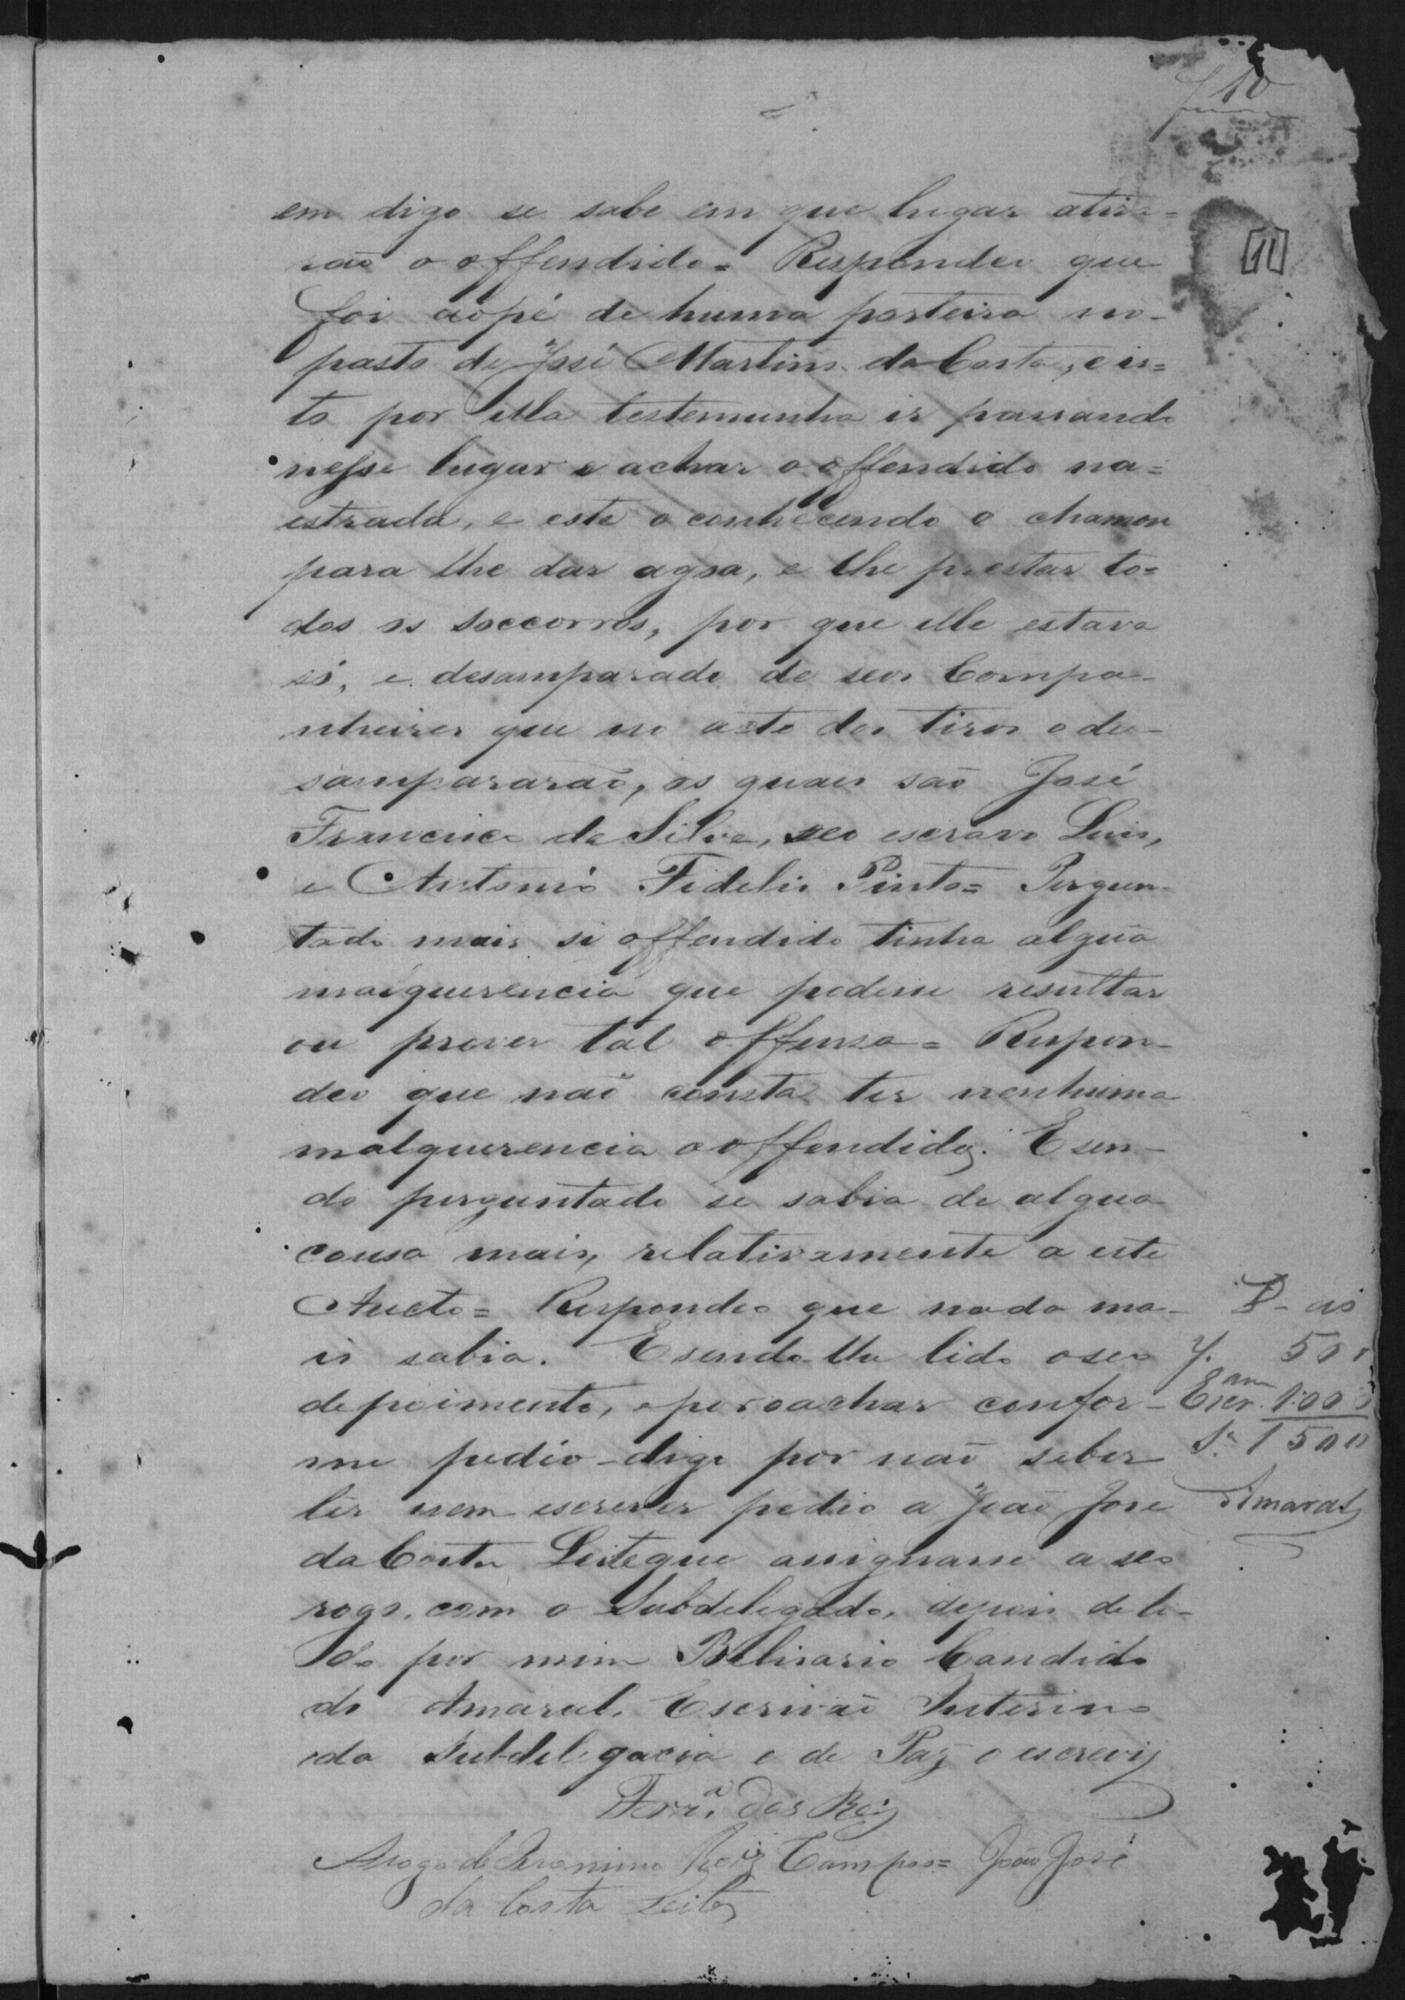 10
11
em digo se sabe em que lugar atira=
rão o offendido= Respondeo que
foi aopé de huma porteira no-
pasto de José Martins da Costa, e is=
to por ella testemunha ir passando
nesse lugar e achar o offendido na=
estrada, e este o conhecendo o chamou
para lhe dar agoa, e lhe prestar to=
dos os soccorros, por que elle estava
só, e desamparado de seos Compa-
nheiros que no acto dos tiros o de-
sampararão, os quaes são José
Francisco da Silva, seo escravo Luis,
e Antonio Fidelis Pinto= Pergun-
tado mais si offendido tinha algũa
malquerencia que podesse resultar
ou prover tal offensa= Respon-
deo que não consta ter nenhuma
malquerencia o offendido. E sen-
do perguntado se sabia de algũa
cousa mais, relativamente a este
Aucto= Respondeo que nada ma-
is sabia. E sendo-lhe lido o seo
depoimento, e por o achar confor-
me pedio-digo por não saber
ler nem escrever pedio a João José
da Costa Leite que assignasse a seo
rogo, com o Subdelegado, depois de li-
do por mim Belisario Candido
do Amaral, Escrivão Interino
da Subdelegacia e de Paz o escrevy
Ferrª. dos Reis
Arogo de Jeronimo Reis Campos= João José
da Costa Leite
J. 500
Escr.am 1000
S.e 1500
Amaral